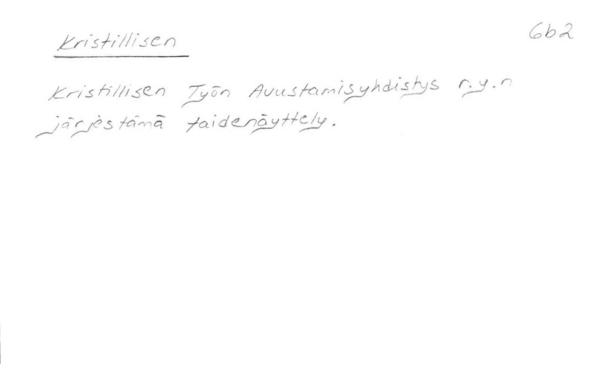 Kristillisen 6b2
Kristillisen Työn Avustamisyhdistys r.y.n
järjestämä taidenäyttely.